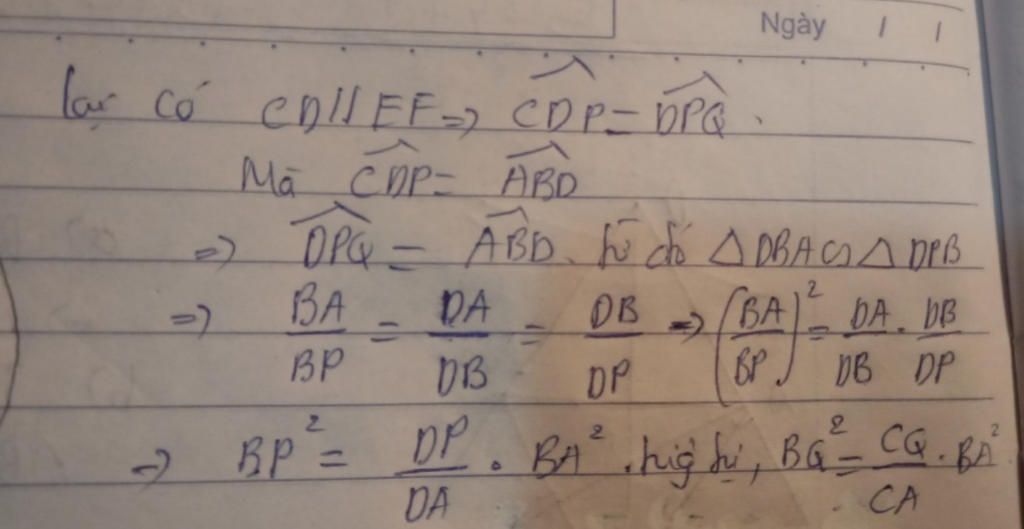 Ngày / /
lại có CD // EF => \widehat{CDP} = \widehat{DPQ}.
Mà \widehat{CDP} = \widehat{ABD}
=> \widehat{DPQ} = \widehat{ABD}. từ đó △DBA ∽ △DPB
=> \frac{BA}{BP} = \frac{DA}{DB} = \frac{DB}{DP} => \left(\frac{BA}{BP}\right)^2 = \frac{DA}{DB} . \frac{DB}{DP}
=> BP^2 = \frac{DP}{DA} . BA^2. tương tự, BQ^2 = \frac{CQ}{CA} . BA^2